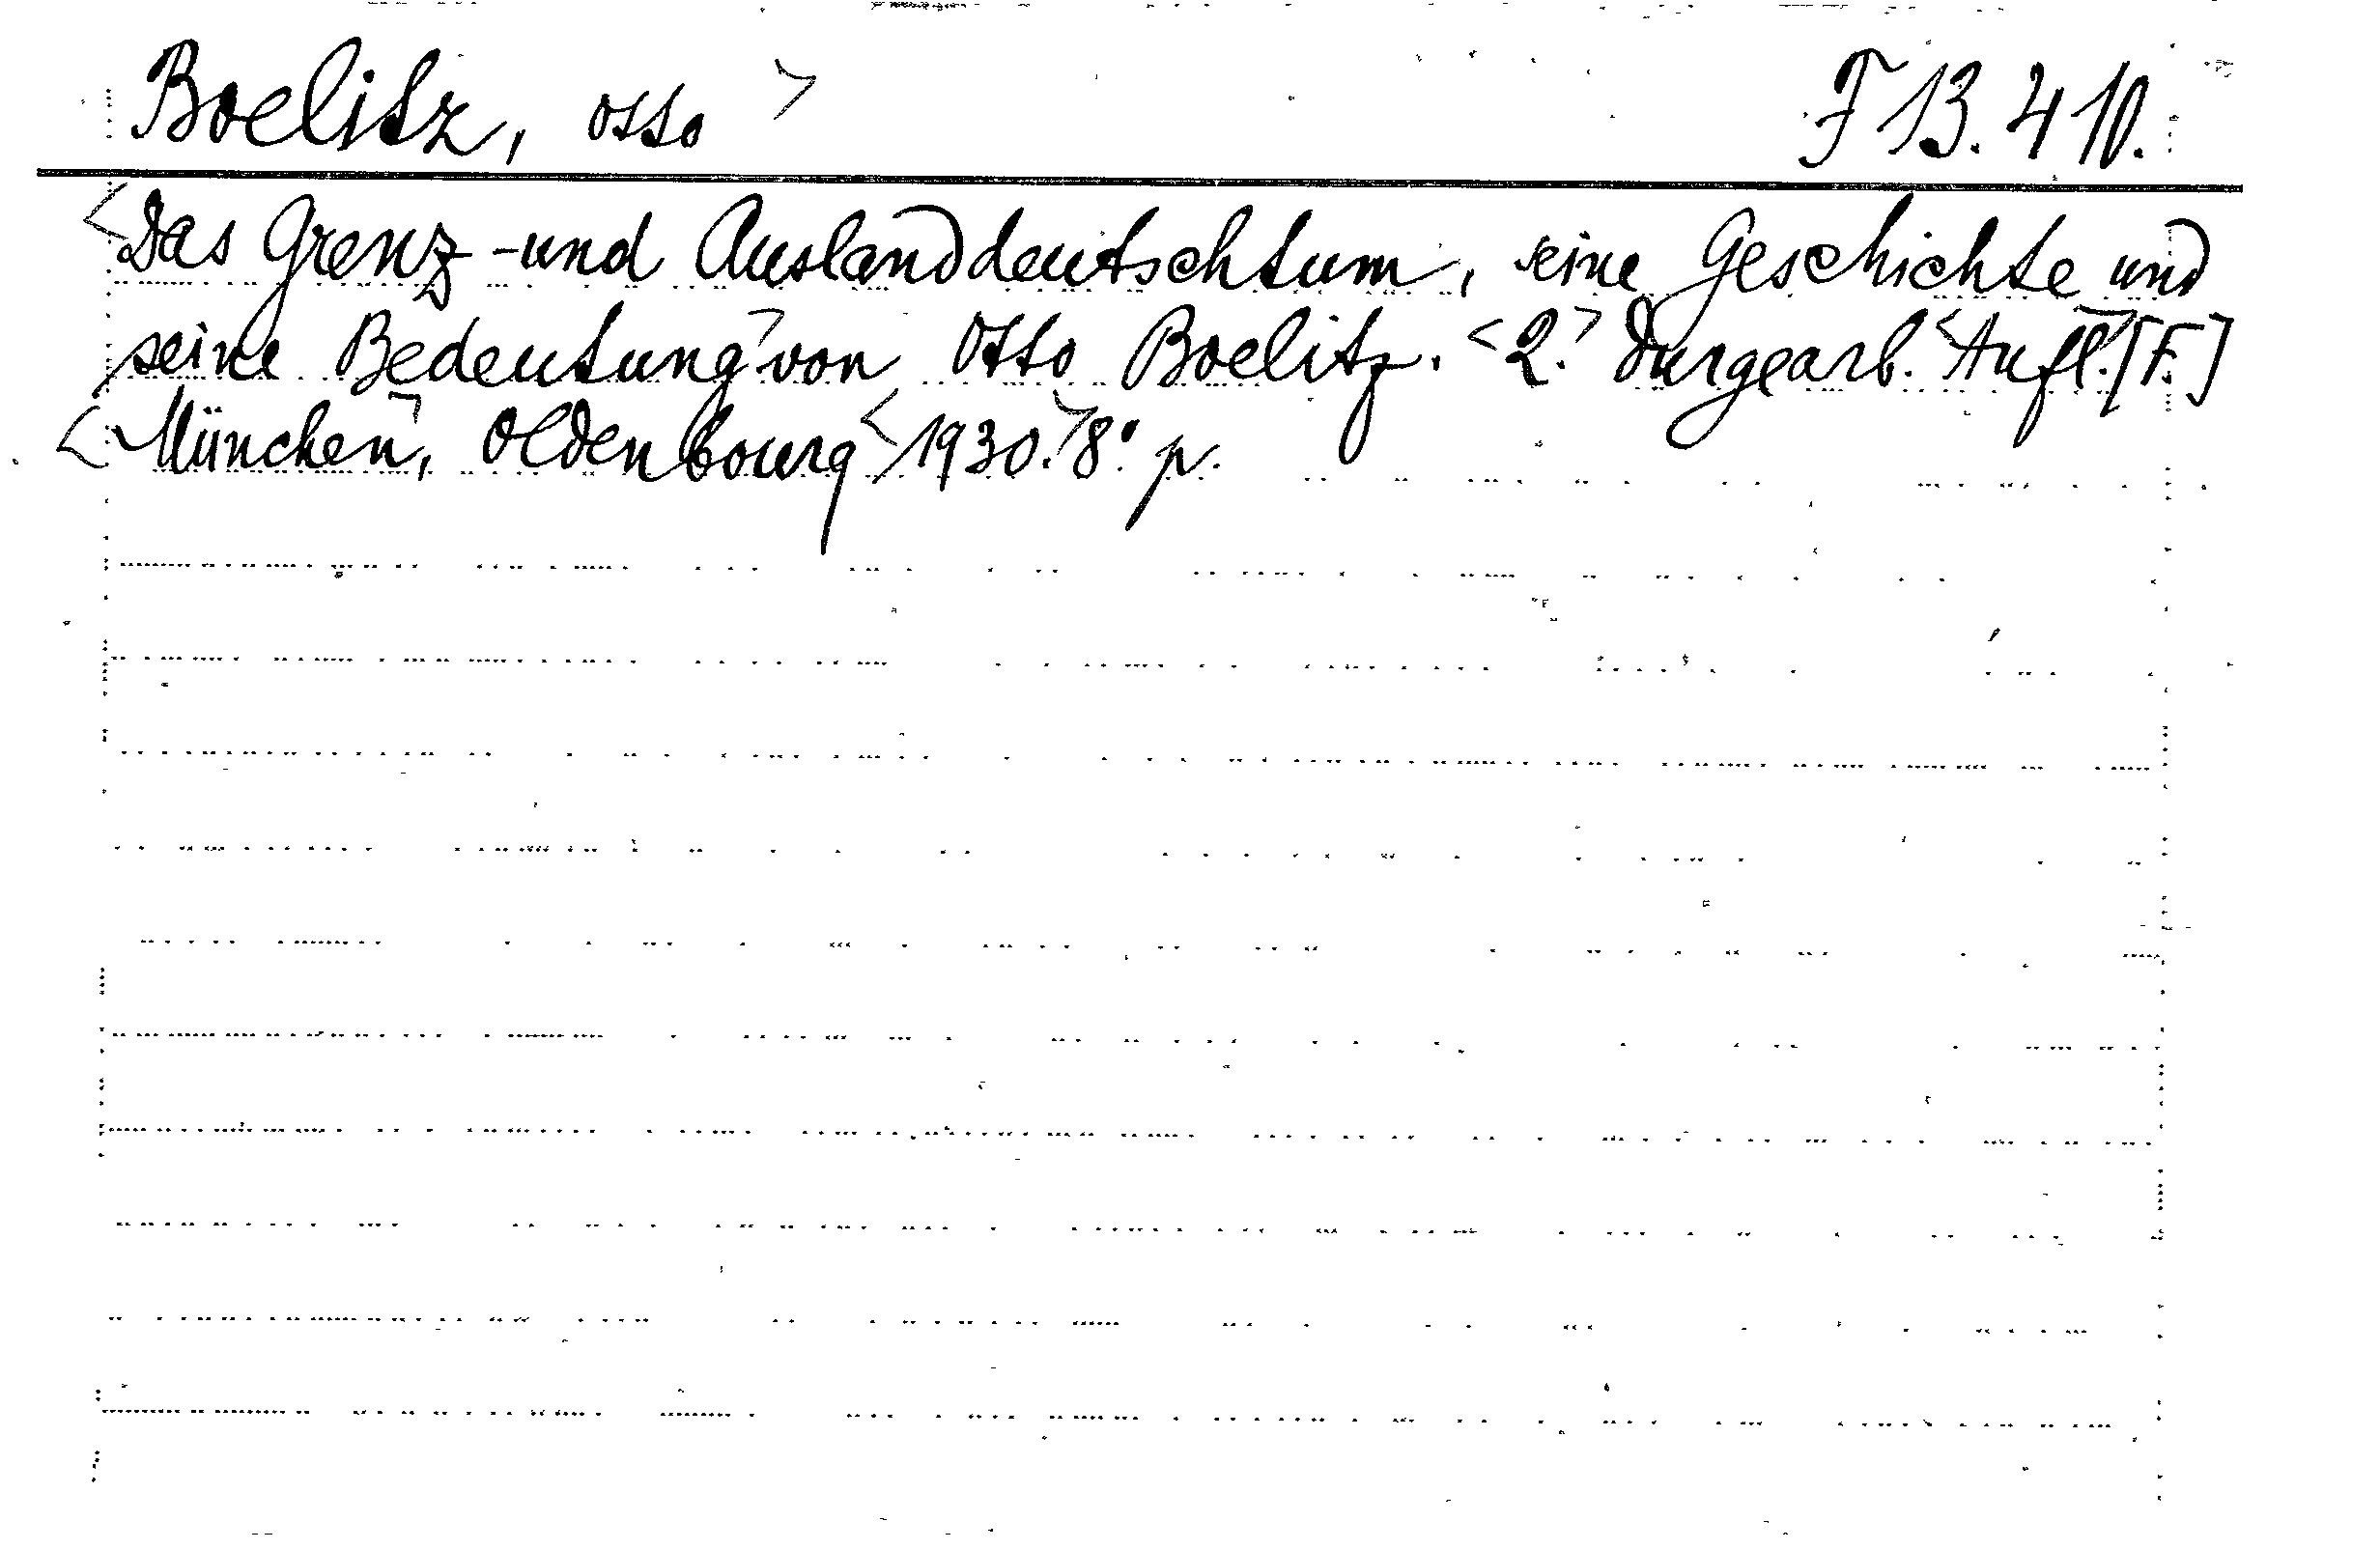 Boelitz, Otto > F 13.410.
<Das Grenz-und Ausland deutschtum, seine Geschichte und
seine Bedeutung> von Otto Boelitz. <2.> Durgearb. <Aufl.> [F.]
<München>, Oldenbourg <1930.> 8° p.